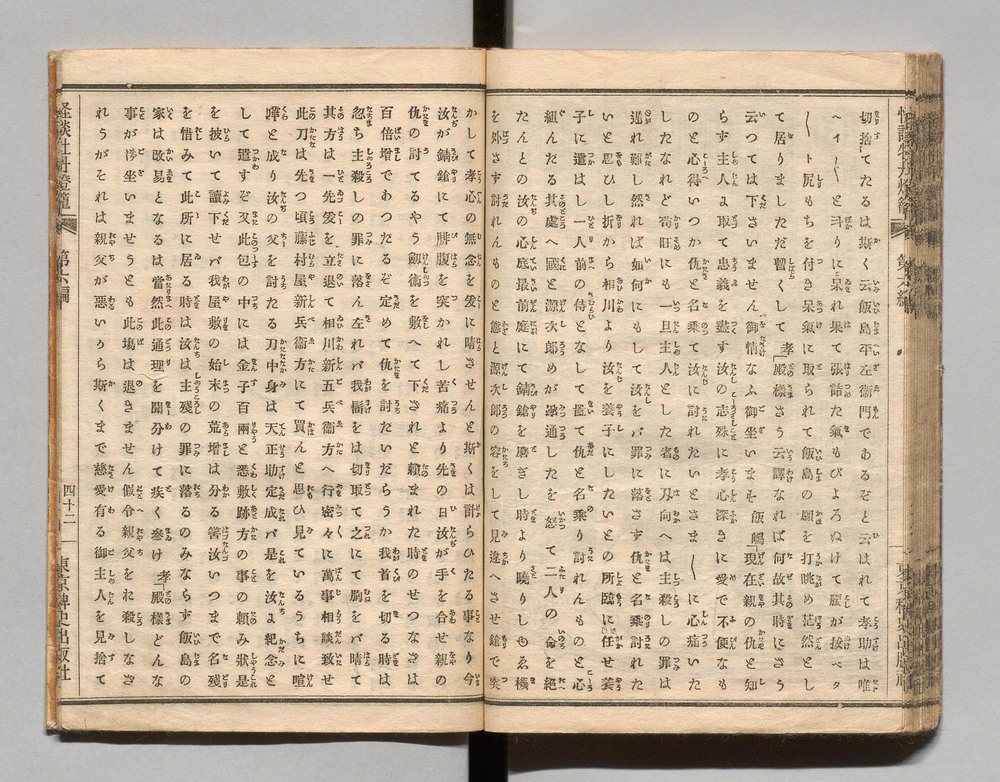 切捨てたるは斯く云飯島平左衛門であるぞと云はれて孝助は唯
ヘイ〳〵と計りに呆れ果て張詰た氣もひよろぬけて腰が拔ペタ
〳〵ト尻もちを付き呆氣に取られて飯島の願を打眺め茫然とし
て居りましたが暫くして 孝「殿樣さう云譯なれば何故其時に斯う
云つては下さいません御情なふ御坐いまを 飯嶋「現在親の仇と知
らず主人よ取て忠義を盡す汝の志殊に孝心深きに愛で不便なも
のと心得いつか仇と名乘て汝に討れたいとさま〴〵に心痛いた
したなれど苟旦にも一旦主人とした者に刄向へは主殺しの罪は
遁れ難し然れば如何にもして汝をしバ罪に落さす仇と名乘討れた
いと思ひし折から相川より汝を養子にしたいとの所臨に任せ養
子に遣はし一人前の侍となして置て仇と名乘り討れんものと心
組んたる其處へ國と源次郎めが密通したを怒つて二人の命を絕
たんとの汝の心底最前庭にて錆鎗を磨ぎし時より曉りしもゑ機
を外さす討れんものと態と源次郎の容をして見違へさせ鎗で突
かして孝心の無念を爰に晴させんと斯くは計らひたる事なり今
汝が錆鎗にて腓腹を突かれし苦痛より先の日汝が手を合せ親の
仇の討てるやう劔術を敷へて下されと賴まれた時のせつなさは
百倍增であつたるぞ定めて仇を討たいだらうが我首を切る時は
忽ち主殺しの罪に落ん左れバ我髷をは切取て之にて胸をバ晴て
其方は一先爰を立退て相川新五兵衞方へ行密々に萬事相談致せ
此刀は先つ頃藤村屋新兵衞方にて買んと思ひ見ているうちに喧
嘩と成り汝の父を討たる刀中身は天正助定成バ是を汝よ紀念と
して遣すぞ又此包の中には金子百兩と悉敷跡方の事の賴み狀是
を披いて讀下せバ我屋敷の始末の荒增は分る筈汝いつまで名殘
を惜みて此所に居る時は汝は主殘の罪に落るのみならす飯島の
家は改易となるは當然此通理を聞分けて疾く參け 孝「殿樣どんな
事が御坐いませうとも此塲は退きません假令親父をお殺しなさ
れうがそれは親父が惡いから斯くまで慈愛有る御主人を見捨て
怪談牡丹燈籠 第六編 四十二 東京稗史出版社